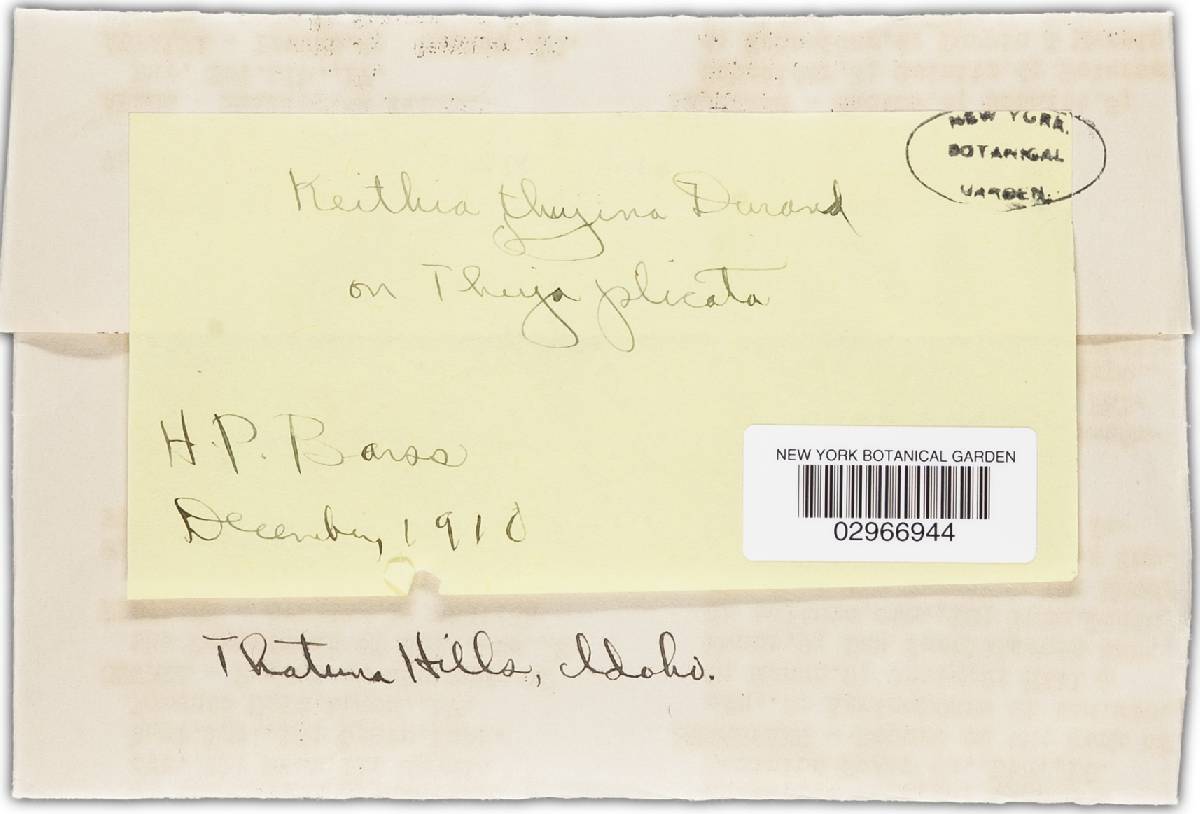 NEW YORK
BOTANICAL
GARDEN.
Keithia thujina Durand
on Thuja plicata
H. P. Barss
December, 1910
NEW YORK BOTANICAL GARDEN
02966944
Thatuna Hills, Idaho.